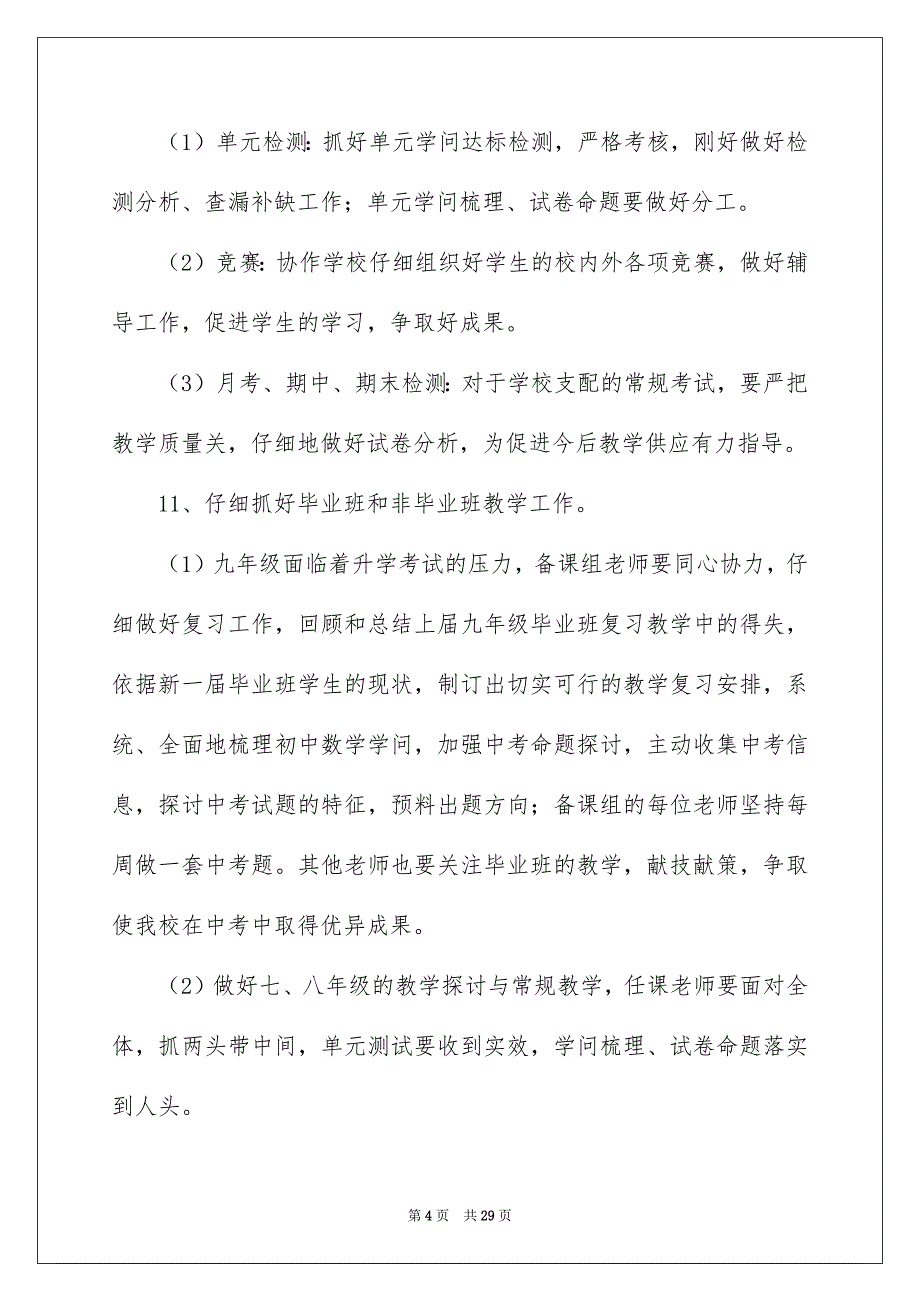 （1）单元检测：抓好单元学问达标检测，严格考核，刚好做好检
测分析、查漏补缺工作；单元学问梳理、试卷命题要做好分工。
（2）竞赛：协作学校仔细组织好学生的校内外各项竞赛，做好辅
导工作，促进学生的学习，争取好成果。
（3）月考、期中、期末检测：对于学校支配的常规考试，要严把
教学质量关，仔细地做好试卷分析，为促进今后教学供应有力指导。
11、仔细抓好毕业班和非毕业班教学工作。
（1）九年级面临着升学考试的压力，备课组老师要同心协力，仔
细做好复习工作，回顾和总结上届九年级毕业班复习教学中的得失，
依据新一届毕业班学生的现状，制订出切实可行的教学复习安排，系
统、全面地梳理初中数学学问，加强中考命题探讨，主动收集中考信
息，探讨中考试题的特征，预料出题方向；备课组的每位老师坚持每
周做一套中考题。其他老师也要关注毕业班的教学，献技献策，争取
使我校在中考中取得优异成果。
（2）做好七、八年级的教学探讨与常规教学，任课老师要面对全
体，抓两头带中间，单元测试要收到实效，学问梳理、试卷命题落实
到人头。
第 4 页 共 29 页